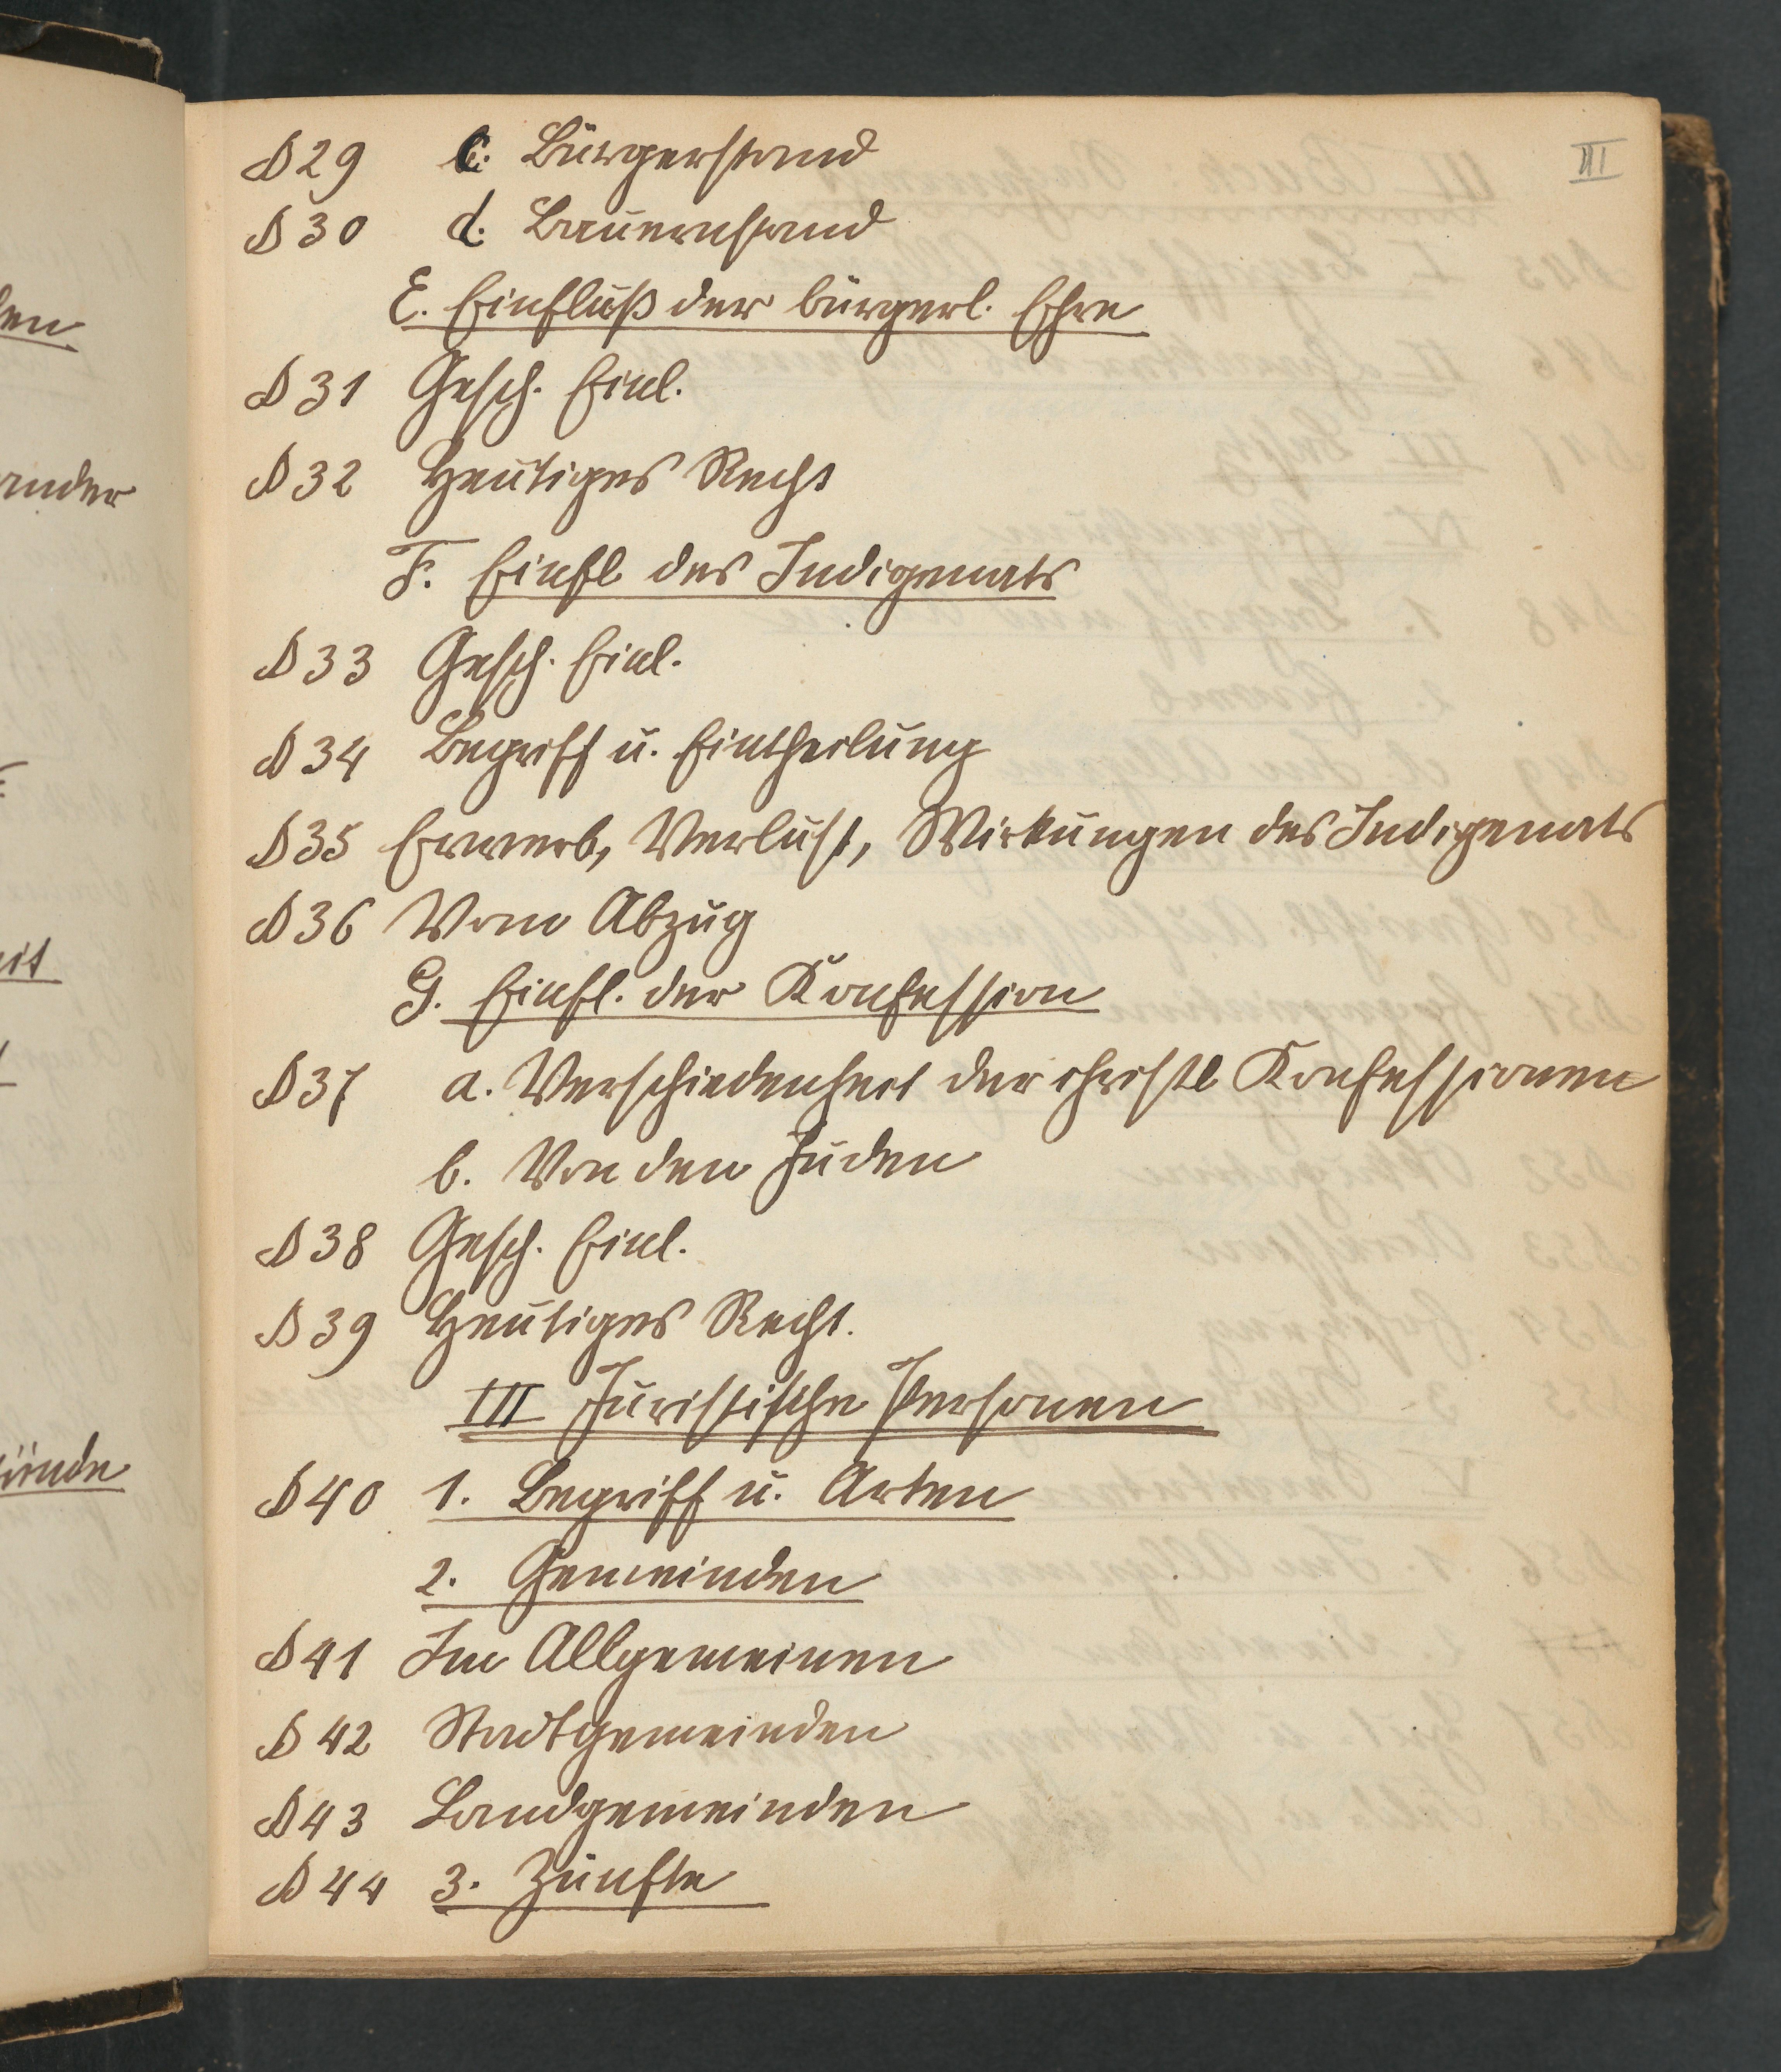 III
§ 29 c. Bürgerstand
§ 30 d. Bauernstand
E. Einfluß der bürgerl. Ehre
§ 31 Gesch. Einl.
§ 32 Heutiges Recht
F. Einfl des Indigenats
§ 33 Gesch. Einl.
§ 34 Begriff u. Eintheilung
§ 35 Erwerb, Verlust, Wirkungen des Indigenats
§ 36 Vom Abzug
G. Einfl. der Konfession
§ 37 a. Verschiedenheit der christl Konfessionen
b. Von den Juden
§ 38 Gesch. Einl.
§ 39 Heutiges Recht.
III Juristische Personen
§ 40 1. Begriff u. Arten
2. Gemeinden
§ 41 Im Allgemeinen
§ 42 Stadtgemeinden
§ 43 Landgemeinden
§ 44 3. Zünfte